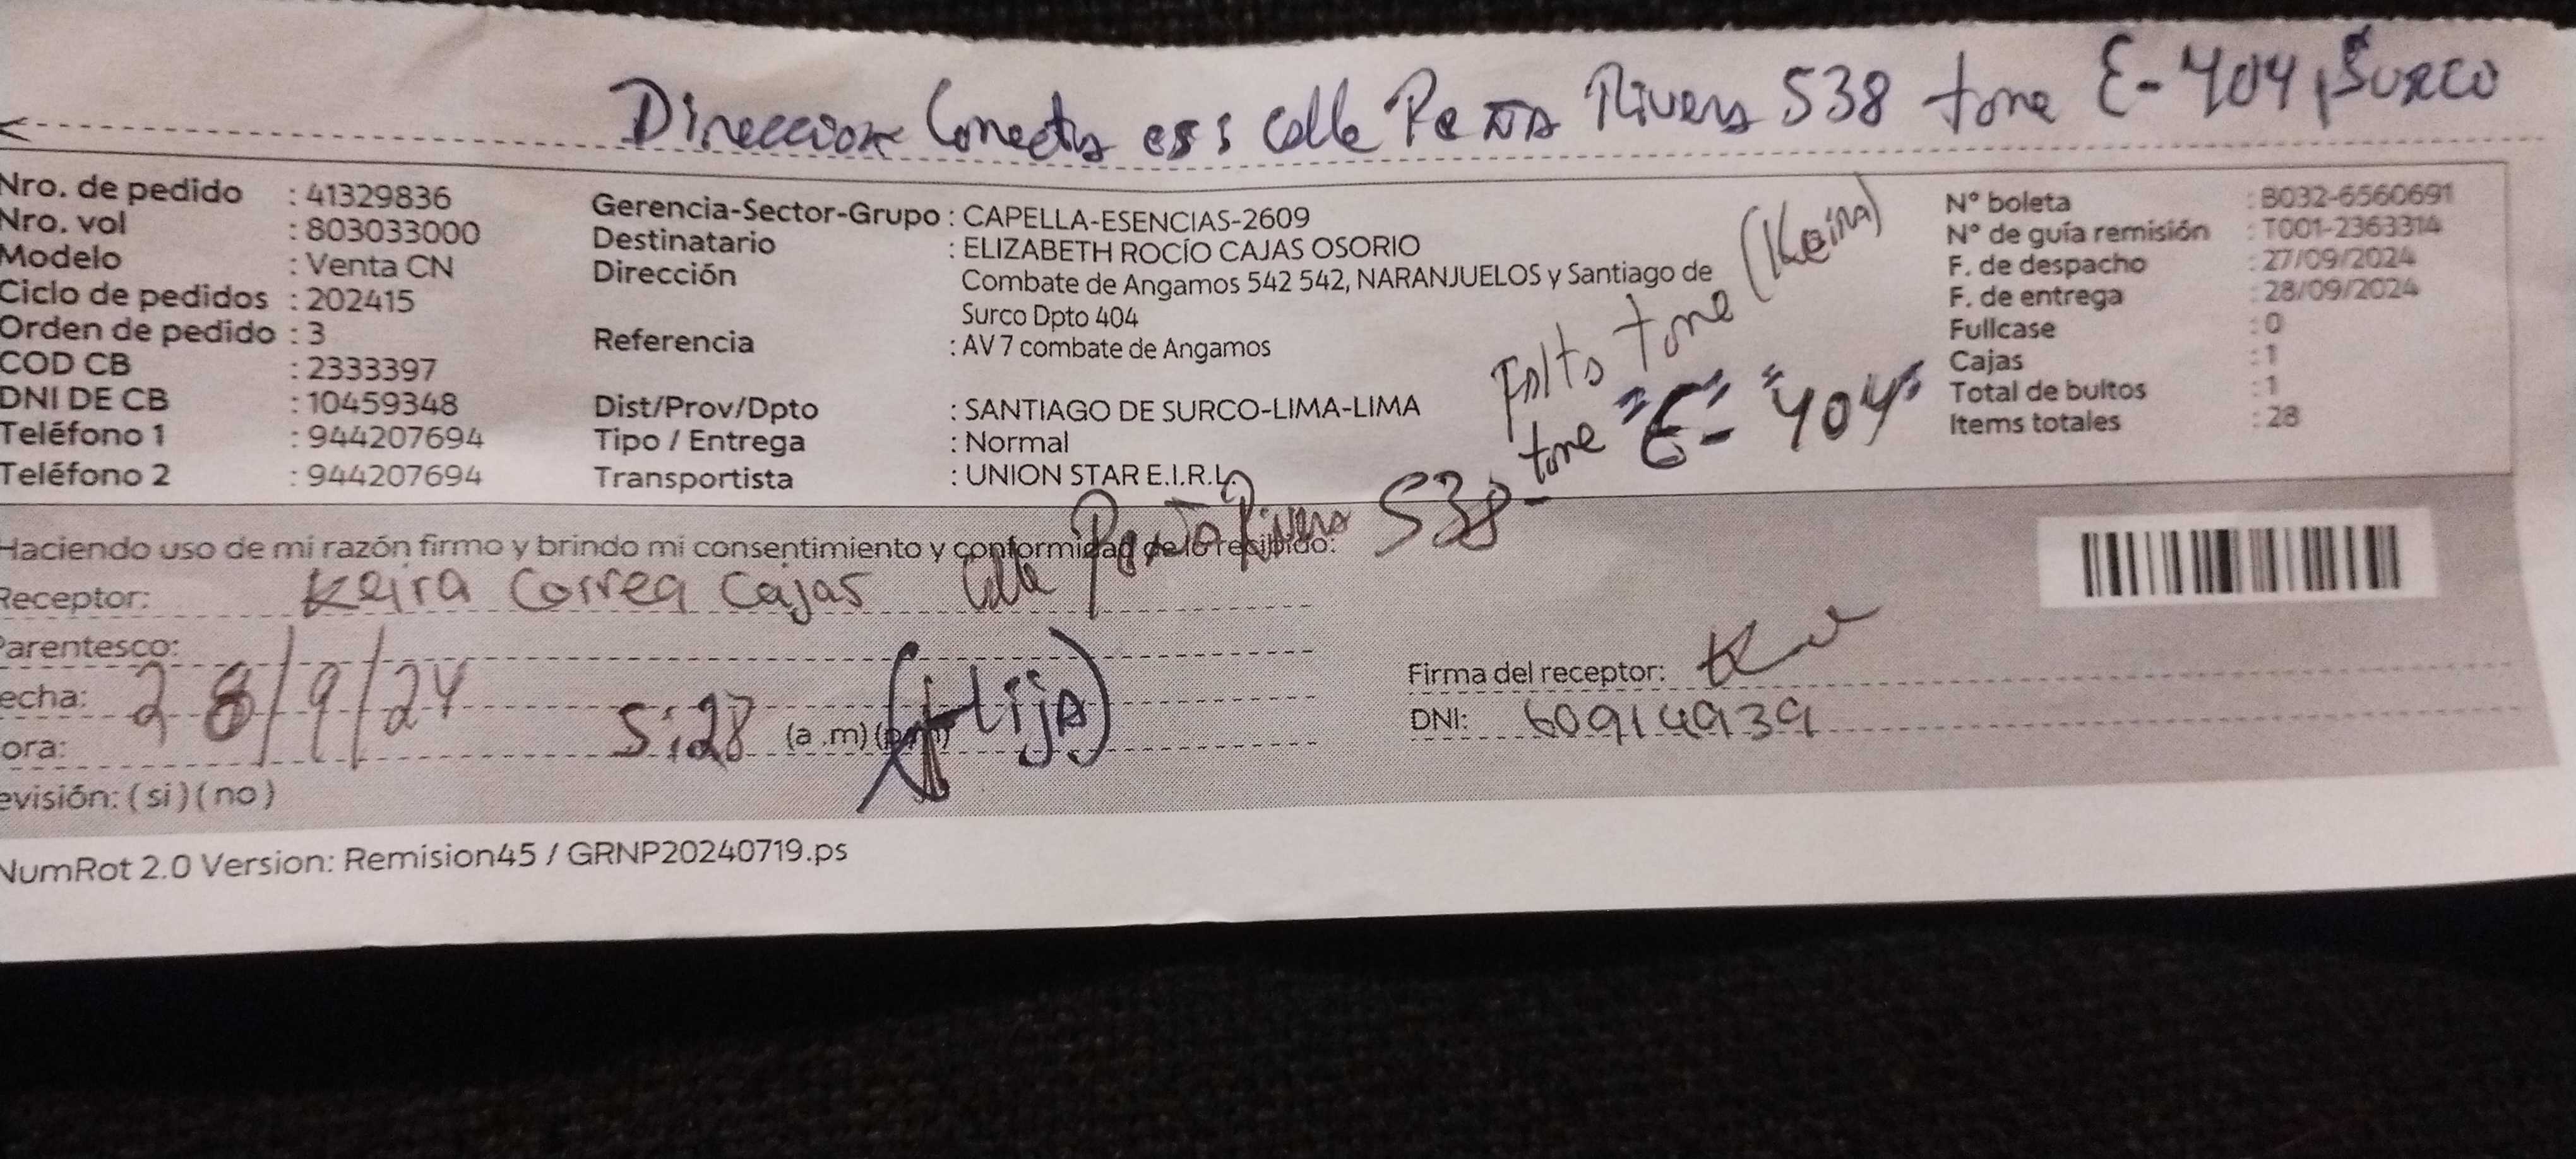 Direccion Conecta es: calle Peña Rivera 538 torre E-404, Surco
Nro. de pedido : 41329836
Nro. vol : 803033000
Modelo : Venta CN
Ciclo de pedidos : 202415
Orden de pedido : 3
COD CB : 2333397
DNI DE CB : 10459348
Teléfono 1 : 944207694
Teléfono 2 : 944207694
Gerencia-Sector-Grupo : CAPELLA-ESENCIAS-2609
Destinatario : ELIZABETH ROCÍO CAJAS OSORIO
Dirección Combate de Angamos 542 542, NARANJUELOS y Santiago de
Surco Dpto 404
Referencia : AV 7 combate de Angamos
Dist/Prov/Dpto : SANTIAGO DE SURCO-LIMA-LIMA
Tipo / Entrega : Normal
Transportista : UNION STAR E.I.R.L.
(Keira)
Falto torre
torre "E"- "404"
N° boleta : B032-6560691
N° de guía remisión : T001-2363314
F. de despacho : 27/09/2024
F. de entrega : 28/09/2024
Fullcase : 0
Cajas : 1
Total de bultos : 1
Items totales : 28
Calle Peña Rivera 538-
Haciendo uso de mi razón firmo y brindo mi consentimiento y conformidad de lo recibido:
Receptor: Keira Correa Cajas
Parentesco:
echa: 28/9/24
ora: 5:28 (a .m) (p.m)
(Hija)
evisión: (si) (no)
Firma del receptor:
DNI: 60914939
NumRot 2.0 Version: Remision45 / GRNP20240719.ps